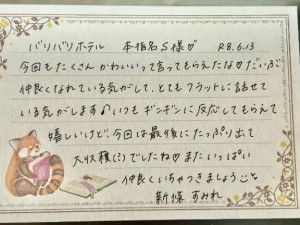 バリバリホテル 本指名S様♡ R8.6.13
今回もたくさんかわいいって言ってもらえたな♡だいぶ
仲良くなれている気がして、とてもフラットに話せて
いる気がします♪いつもギンギンに反応してもらえて
嬉しいけど、今回は最後にたっぷり出て
大収穫(?)でしたね♡またいっぱい
仲良くいちゃつきましょうご
新條すみれ